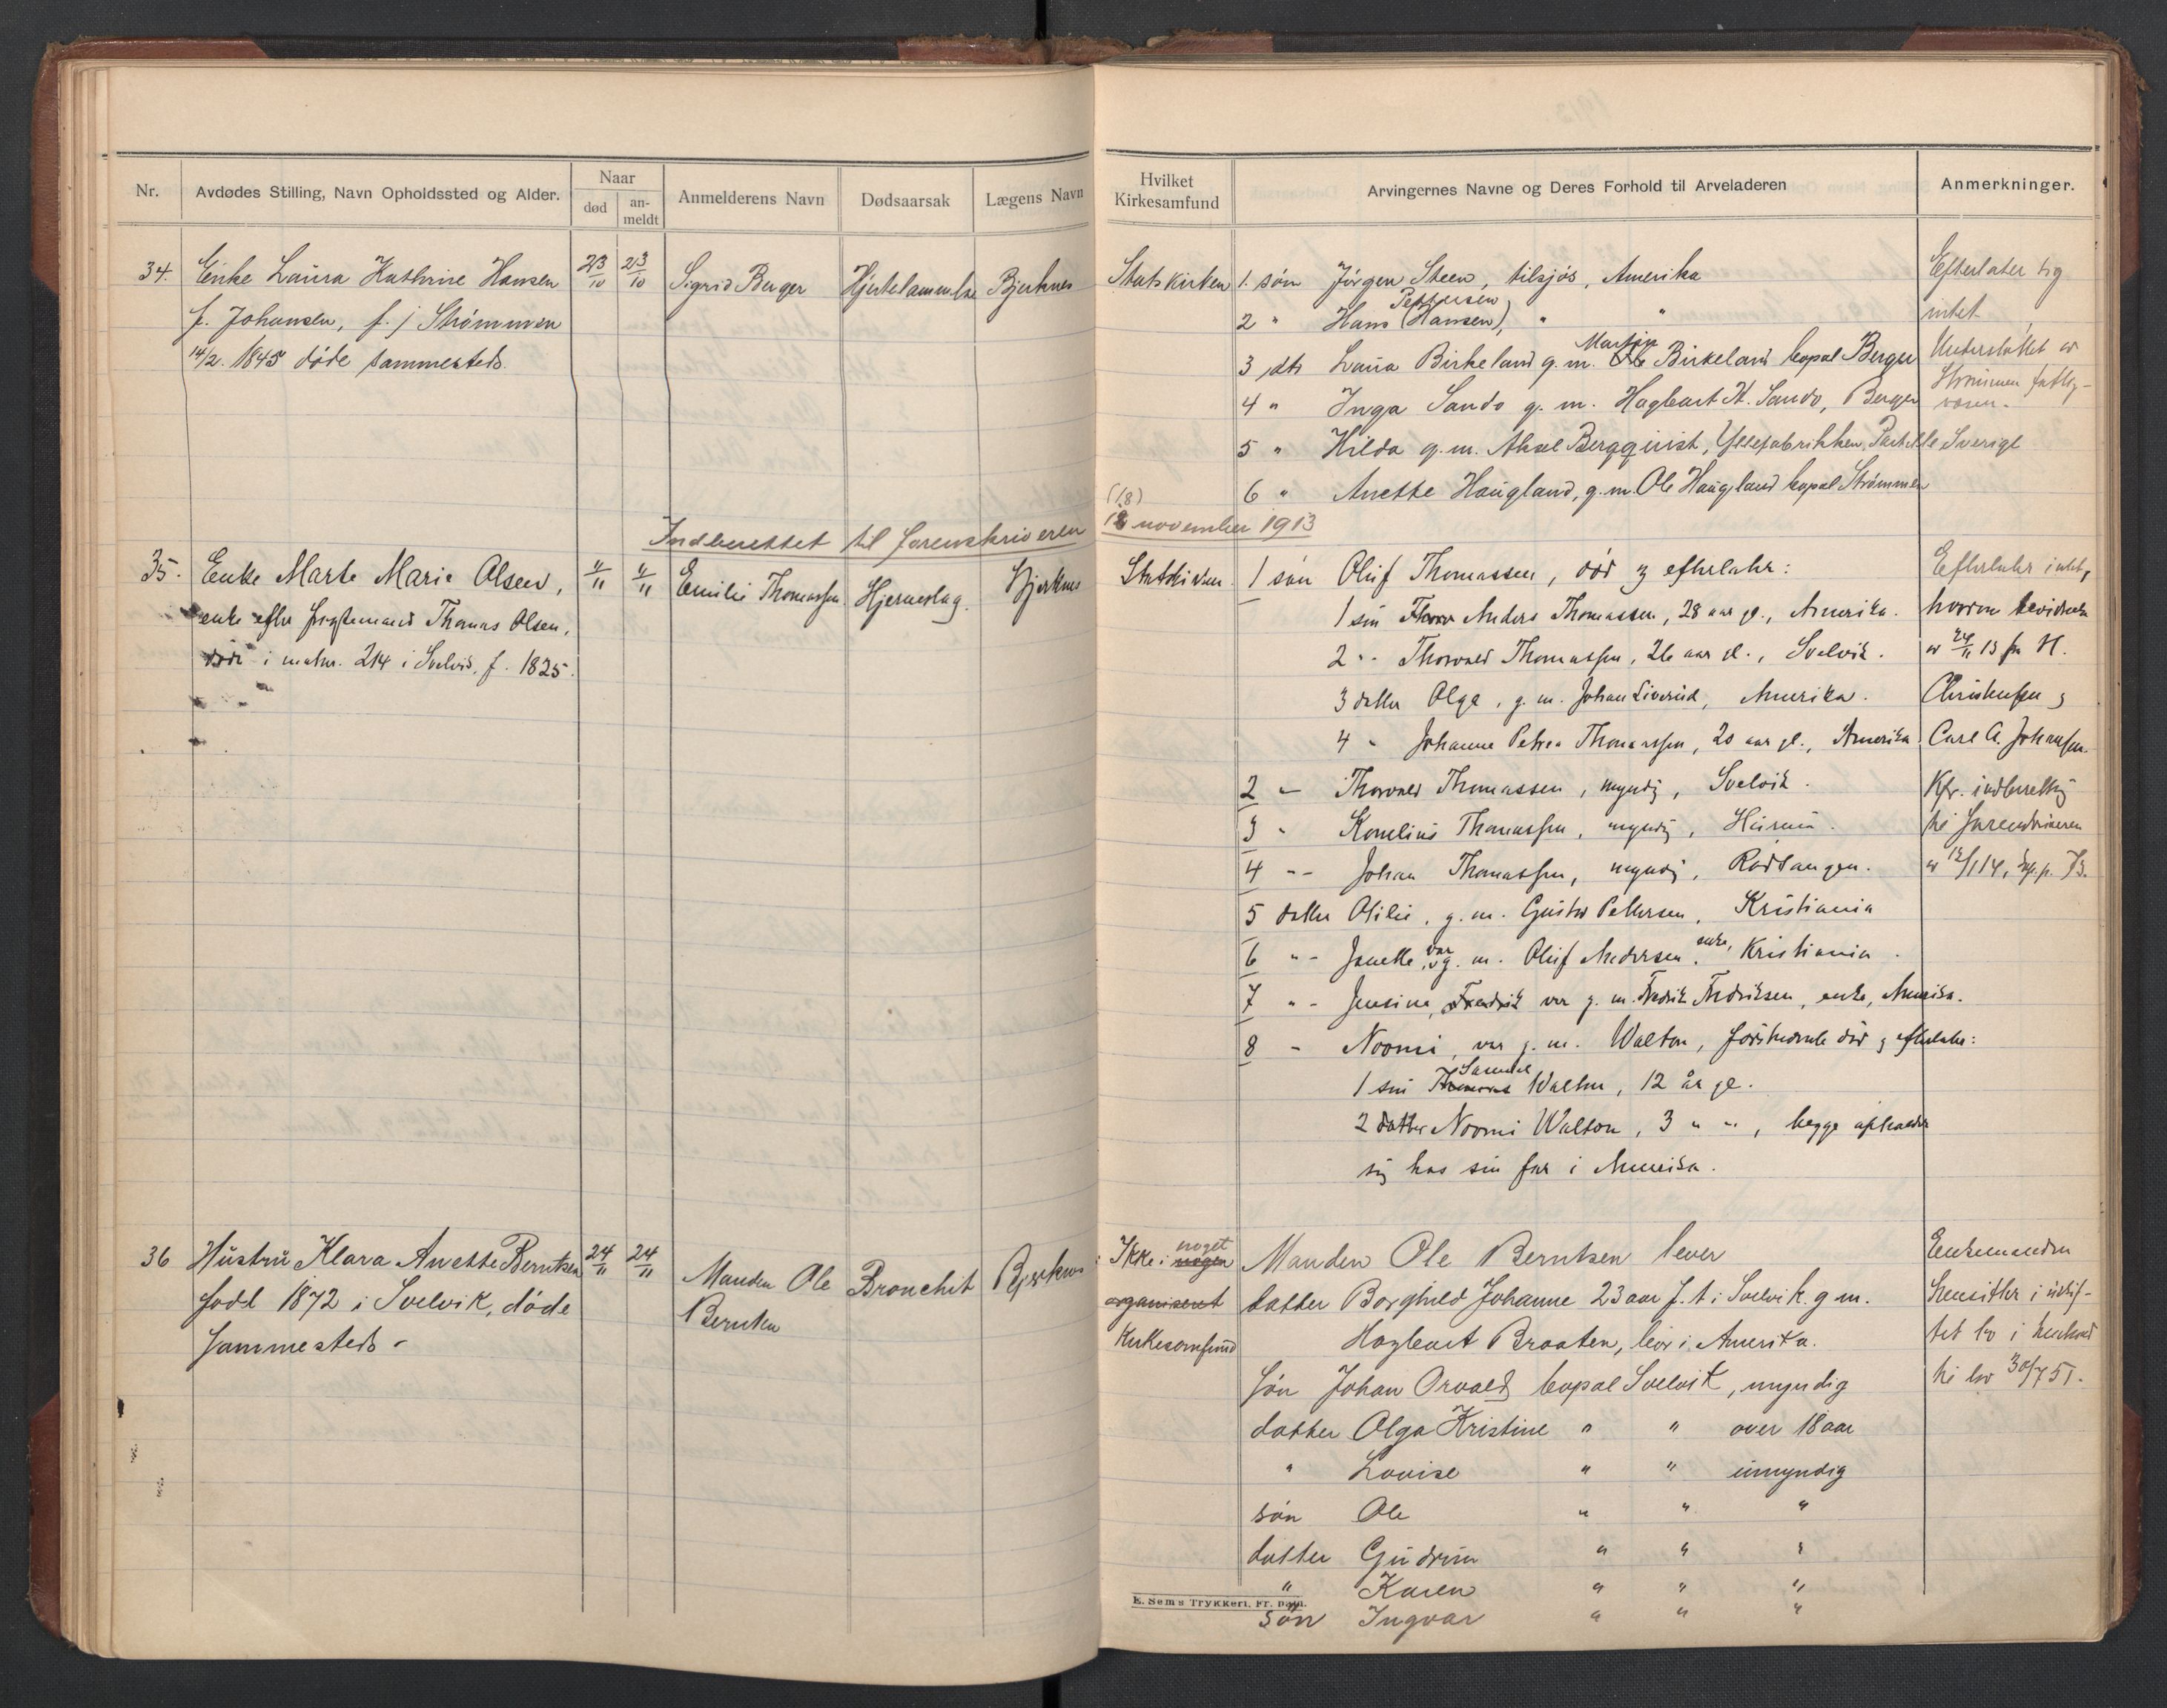 Nr.
Avdødes Stilling, Navn Opholdssted og Alder.
Naar
død
an-
meldt
Anmelderens Navn
Dødsaarsak
Lægens Navn
34. Enke Laura Kathrine Hansen 23/10 23/10 Sigrid Berger Hjertelammelse Bjerknes
f. Johansen, f. i Strømmen
14/2. 1845 døde sammesteds.
Indberettet til sorenskriveren
35. Enke Marte Marie Olsen, 11/11 11/11 Emilie Thomassen. Hjerneslag. Bjerknes
enke efter Thomas Olsen,
døde i matr. 214 i Svelvik, f. 1825.
36 Hustru Klara Anette Berntsen 24/11 24/11 Manden Ole Bronchit Bjerknes
född 1872 i Svelvik, døde Berntsen
sammesteds -
Hvilket
Kirkesamfund
Arvingernes Navne og Deres Forhold til Arveladeren
Anmerkninger.
Statskirken 1. søn Jørgen Steen, tilsjøs, Amerika Efterlater sig
Pettersen
2 " Hans (Hansen), " " intet
Martin
3 dtr Laura Birkeland g. m. Ole Birkeland bopæl Berger Understøttet av
4 " Inga Sando g. m. Hagbart H. Sando, Berger Strømmen fattig-
væsen.
5 " Hilda g. m. Aksel Bergquist, Yllefabrikken, Sverige
6 " Anette Haugland, g. m. Ole Haugland bopæl Strømmen
(18)
18 november 1913
Statskirken. 1 søn Oluf Thomassen, død og efterlater: Efterlater intet,
1 søn Anders Thomassen, 28 aar gl., Amerika. hvorom bevidnelse
2 " Thorvald Thomassen, 26 aar gl., Svelvik. av 24/11 13 fra H.
3 datter Olga, g. m. Johan Liverud, Amerika. Christensen og
4 " Johanne Petrea Thomassen, 20 aar gl., Amerika Carl A. Johansen.
2 " Thorvald Thomassen, myndig, Svelvik. Kfr. indberetning
3 " Kornelius Thomassen, myndig, Hurum. til sorenskriveren
4 " Johan Thomassen, myndig, Rødtangen. av 12/1 14,
5 datter Otilie, g. m. Gustav Pettersen, Kristiania
6 " Janette, var g. m. Oluf Andersen, enke, Kristiania.
7 " Jensine, Fredrik var g. m. Fredrik Fredriksen, enke, Amerika.
8 " Noomi, var g. m. Walton, sidstnævnte død og efterlater:
Samuel
1 søn Thomas Walton, 12 år gl.
2 datter Noomi Walton, 3 " ", begge opholder
sig hos sin far i Amerika.
noget
Ikke i nogen Manden Ole Berntsen lever Enkemanden
organiseret datter Borghild Johanne 23 aar f. t. i Svelvik. g m. hensitter i uskif-
Kirkesamfund Hagbart Braaten, lever i Amerika. tet bo i henhold
Søn Johan Osvald bopæl Svelvik, myndig til lov 30/7 51.
datter Olga Kristine " " over 18 aar
" Lovise " " umyndig
søn Ole " " "
datter Gudrun " " "
" Karen " " "
E. Sem's Trykkeri, Fr. hald.
søn Ingvar " " "